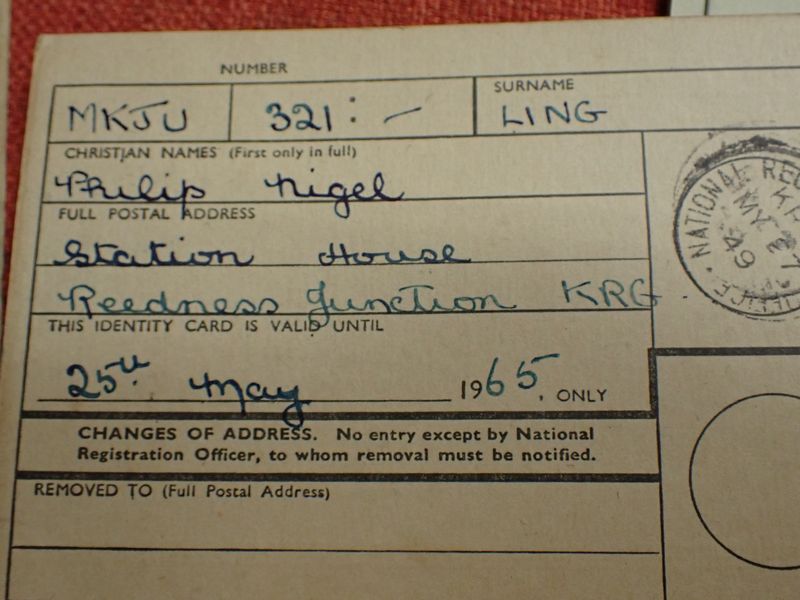 NUMBER
SURNAME
MKJU 321:- LING
CHRISTIAN NAMES (First only in full)
Philip Nigel
FULL POSTAL ADDRESS
Station House
Reedness Junction KRG
THIS IDENTITY CARD IS VALID UNTIL
25th May 1965. ONLY
CHANGES OF ADDRESS. No entry except by National
Registration Officer, to whom removal must be notified.
REMOVED TO (Full Postal Address)
NATIONAL REG
49